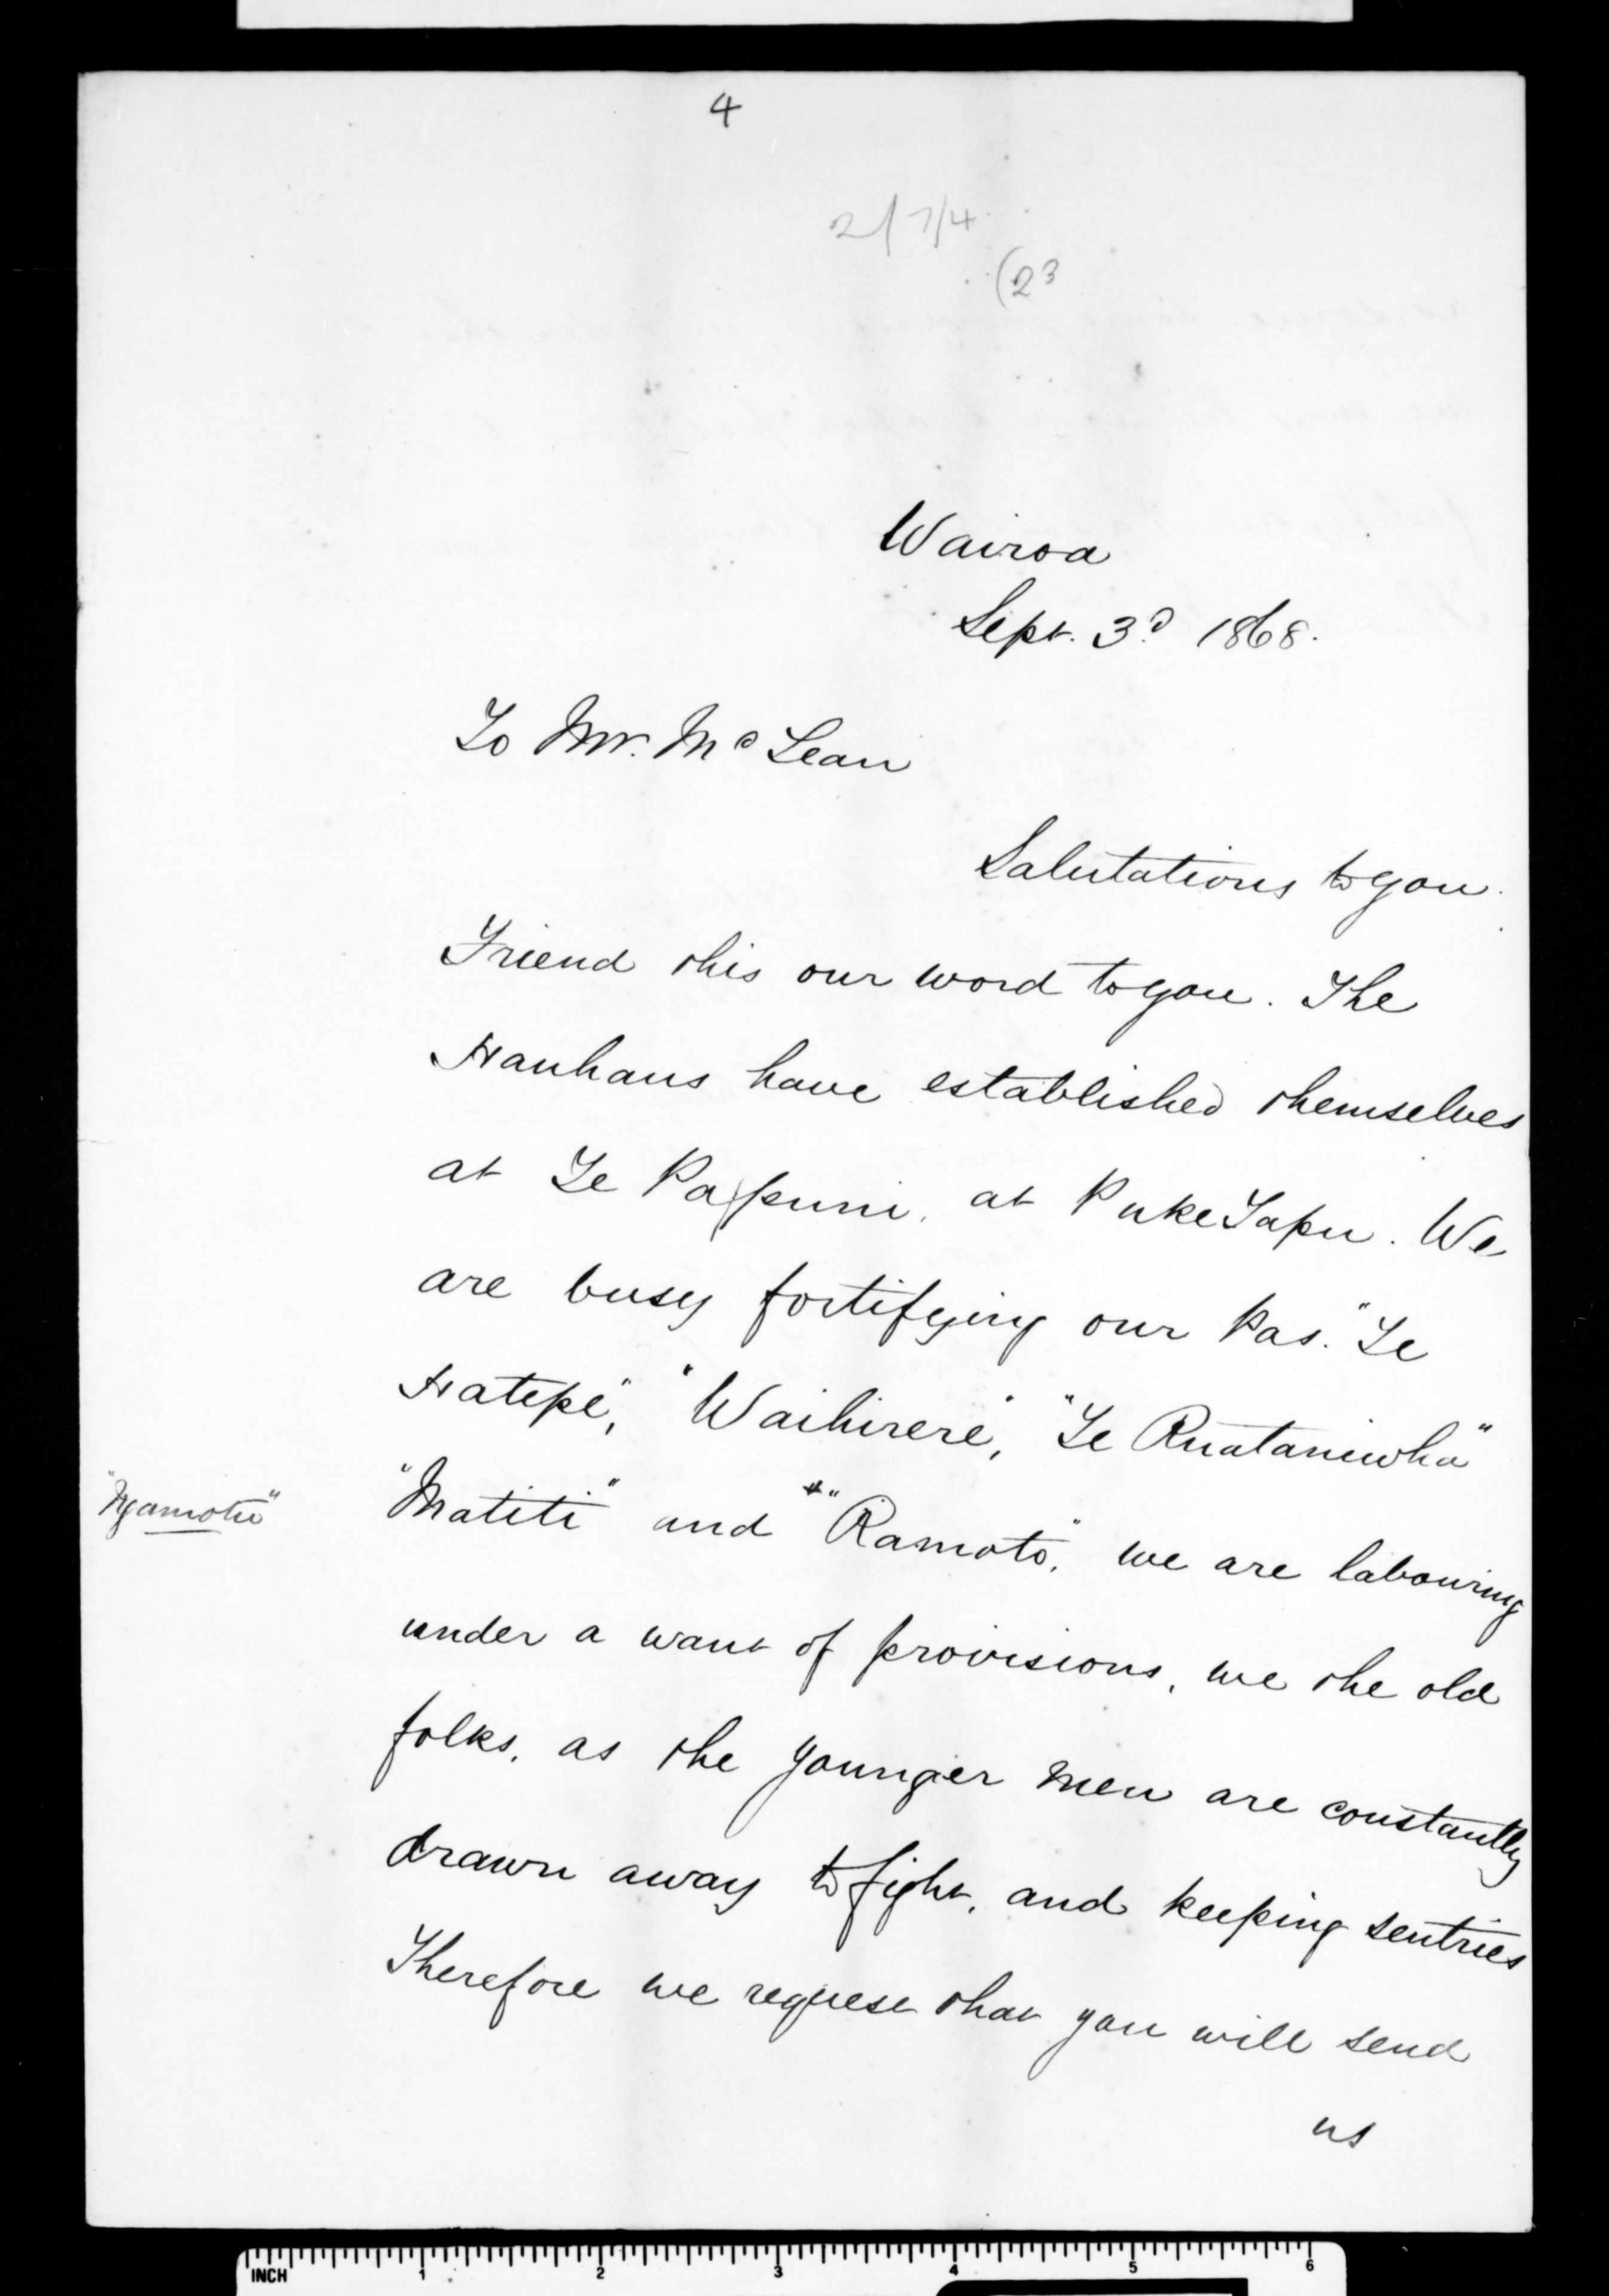 4
2/7/4
(23
Wairoa
Sept. 3d 1868.
To Mr. McLean
Salutations to you.
Friend this our word to you. The
Hauhaus have established themselves
at Te Papuni, at PukeTapu. We
are busy fortifying our Pas. "Te
Hatepe", "Waihirere", "Te Ruataniwha"
"Ngamotu"
"Matiti" and "Ramoto", we are labouring
under a want of provisions, we the old
folks, as the younger men are constantly
drawn away to fight, and keeping sentries
Therefore we request that you will send
us
INCH 1 2 3 4 5 6